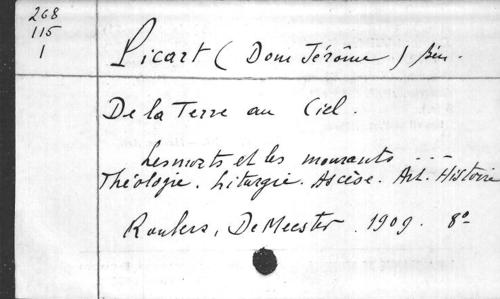 268
115
1
Picart (Dom Jérôme) Bén.
De la Terre au Ciel.
Les morts et les mourants ...
Théologie. Liturgie. Ascèse. Art. Histoire
Roulers, De Meester. 1909. 8°